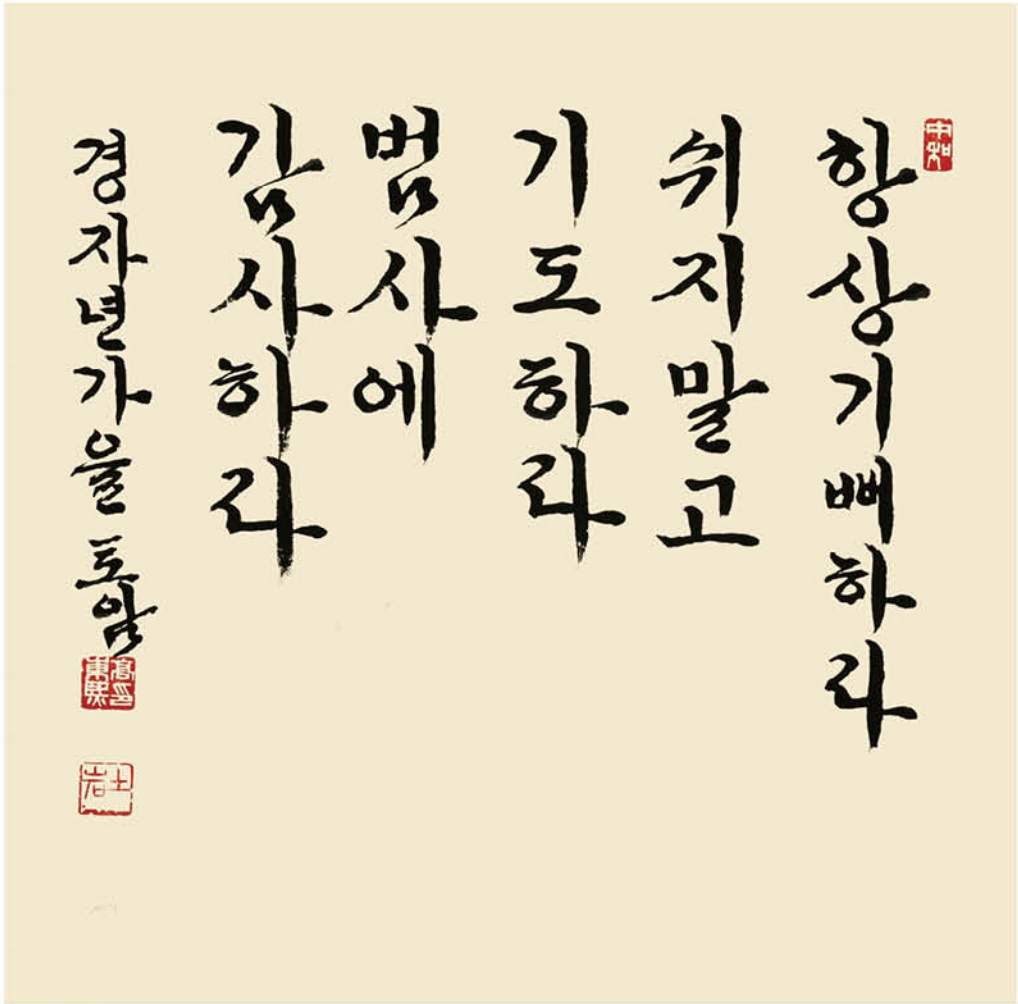 항상기뻐하라
쉬지말고
기도하라
범사에
감사하라
경자년가을 토암
中和
土岩